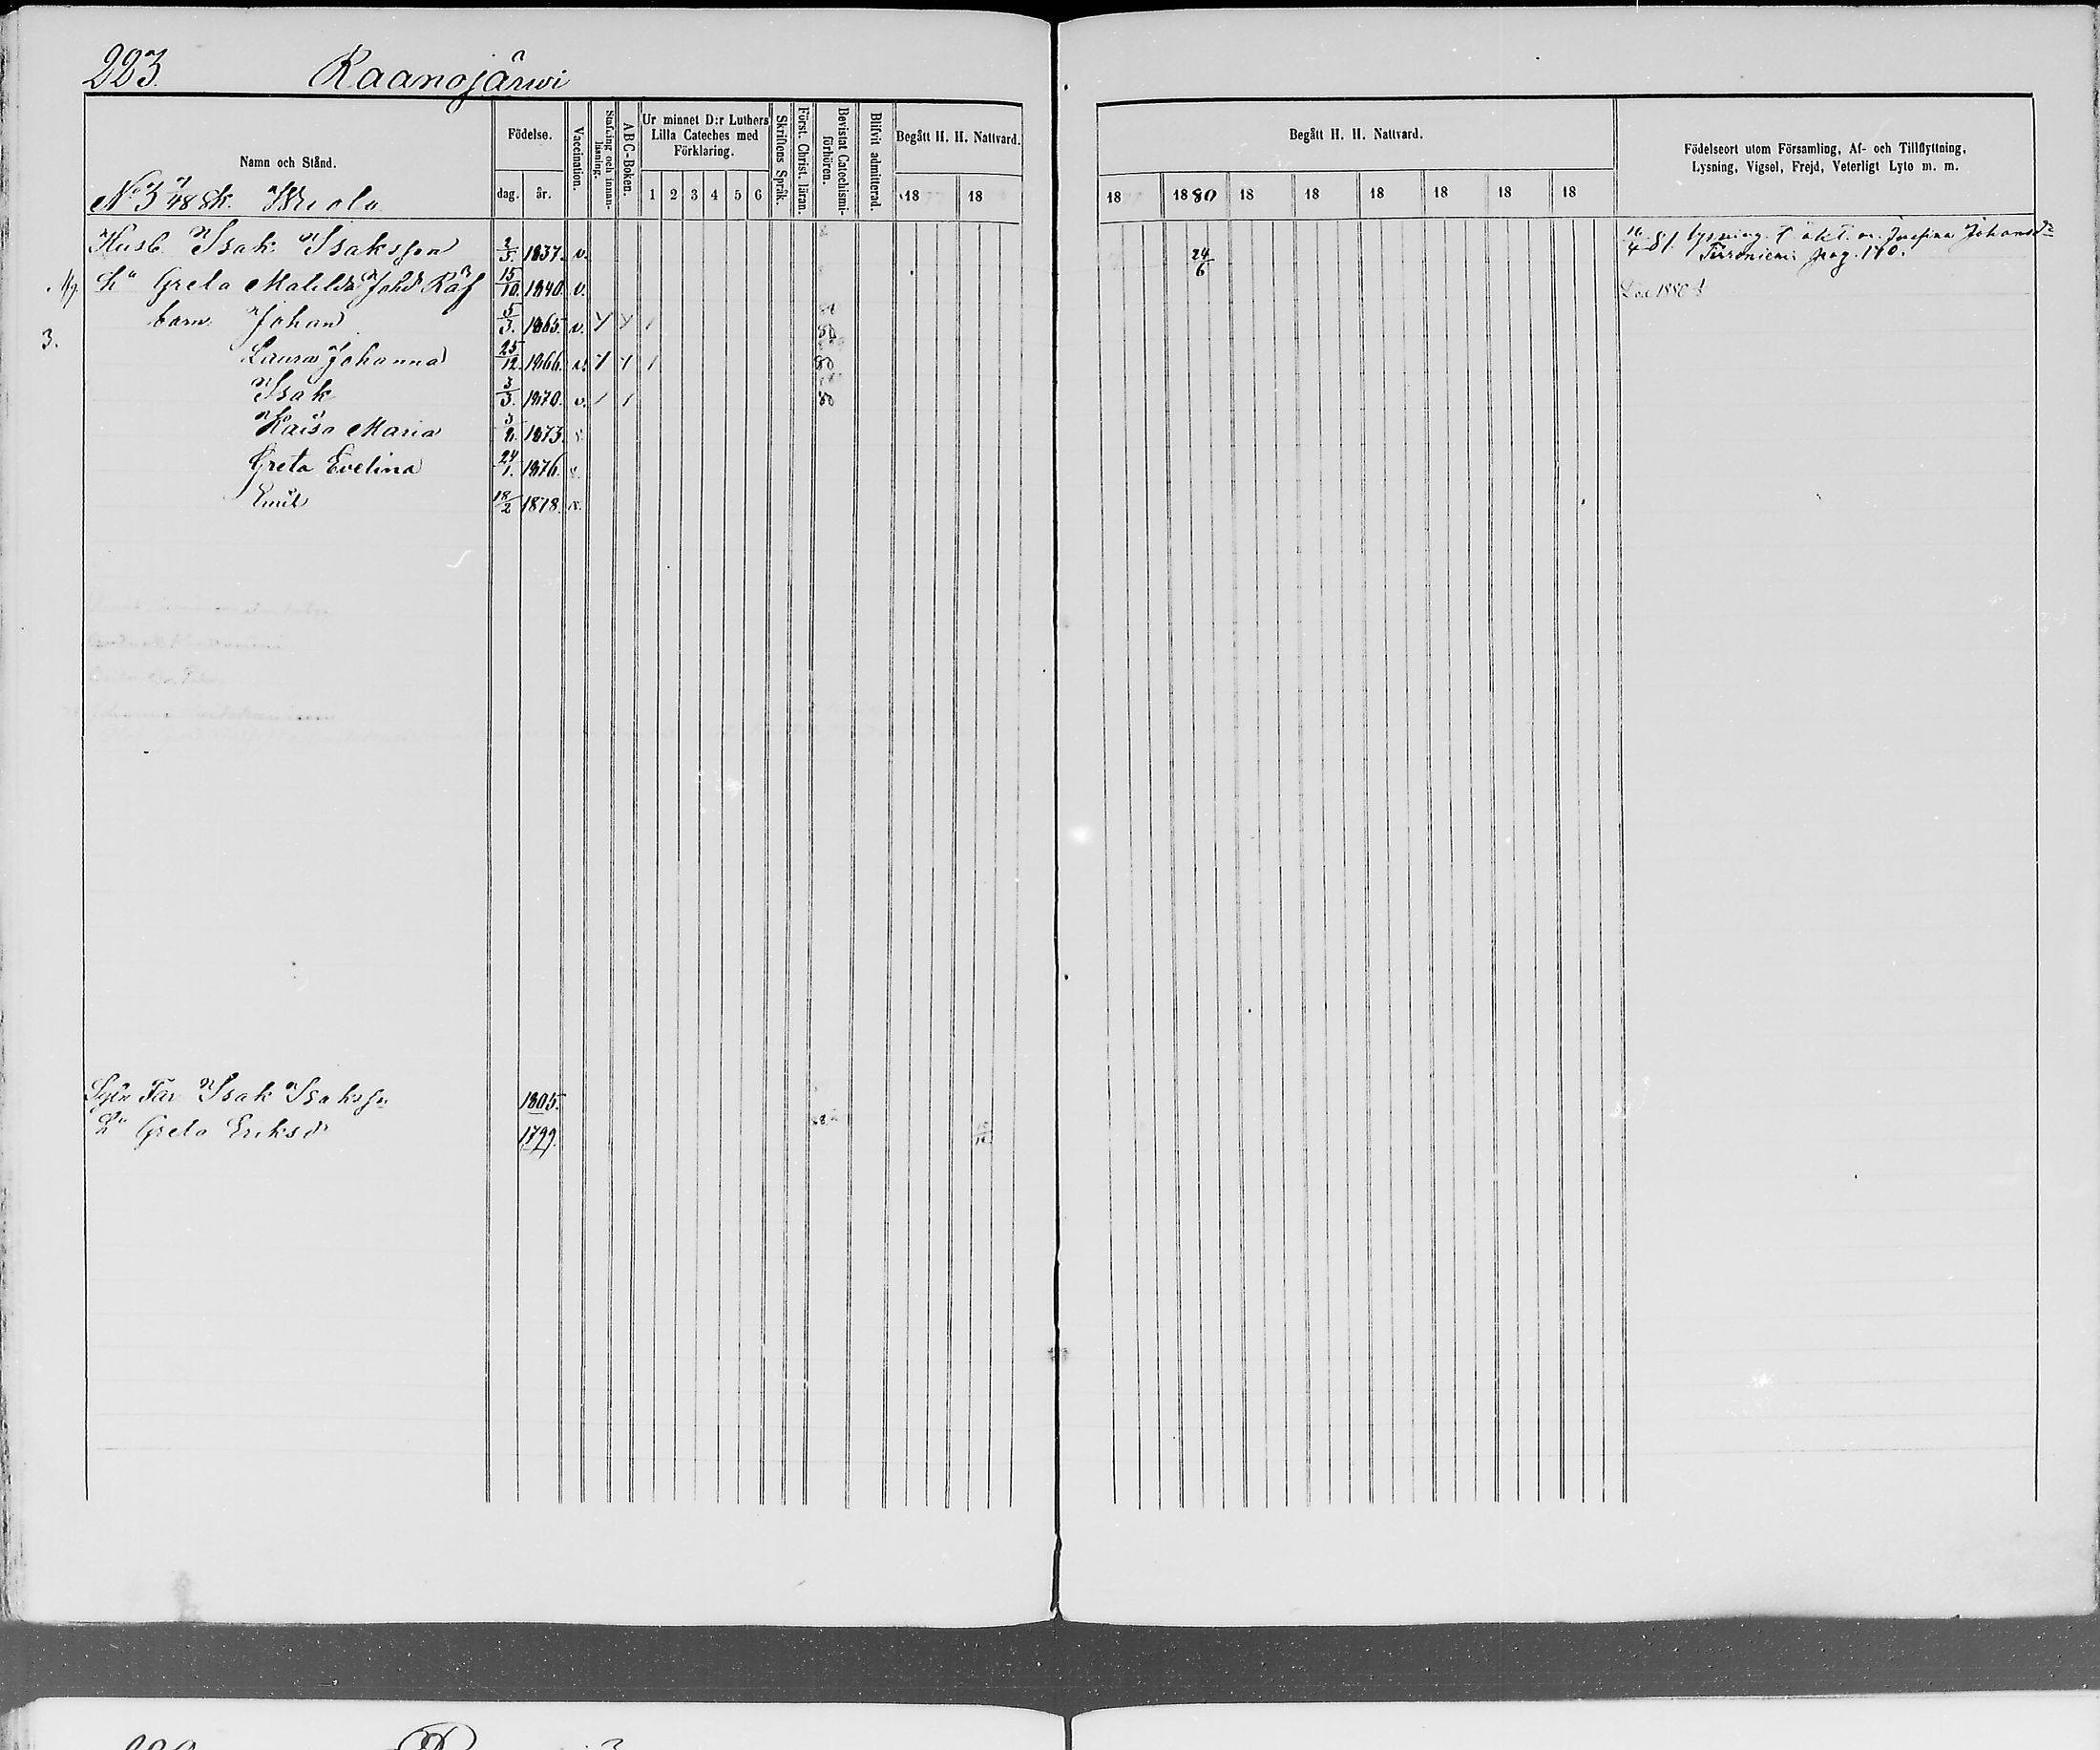 223. Raanojärwi
Namn och Stånd.
Födelse.
dag. år.
Vaccination.
Stafning och innan-läsning.
ABC-Boken.
Ur minnet D:r Luthers
Lilla Cateches med
Förklaring.
1 2 3 4 5 6
Skriftens Språk.
Först. Christ. läran.
Bevistat Catechismi-förhören.
Blifvit admitterad.
Begått H. H. Nattvard.
18 18
Begått H. H. Nattvard.
18 1880 18 18 18 18 18 18
Födelseort utom Församling, Af- och Tillflyttning,
Lysning, Vigsel, Frejd, Veterligt Lyto m. m.
No 3 7/48 sk.
Husb. Isak Isaksson 2/5. 1837. v. 24/6 lysning t. äkt. m. Josefina Johansdr
pag. 140.
Hu Greta Matilda Johd Räf 15/10. 1840. v.
barn Johan 5/3. 1865. v. 80
3.
Laura Johanna 25/12. 1866. v. 80
Isak 3/3. 1870. v. 80
Kaisa Maria 1873. v.
Greta Evelina 24/1. 1876. v.
Emil 18/2 1878. v.
Far Isak Isakss 1805.
Hu Greta Eriksd 1799.